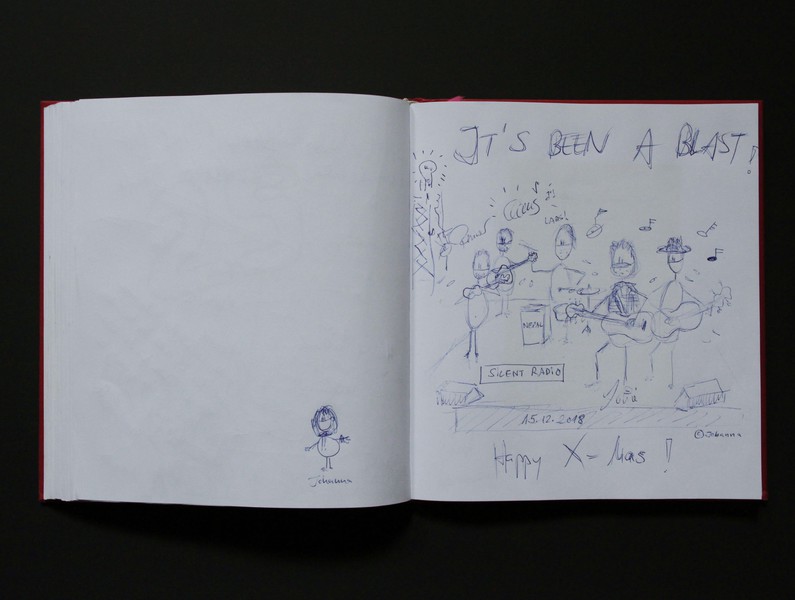 Johanna
IT'S BEEN A BLAST!
NEPAL
SILENT RADIO
15.12.2018
©Johanna
Happy X-Mas!